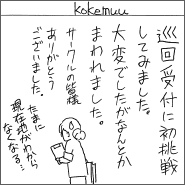 kokemuu
巡回受付に初挑戦
してみました。
大変でしたがなんとか
まわれました。
サークルの皆様
ありがとう
ございました。
たまに
現在地がわから
なくなる…